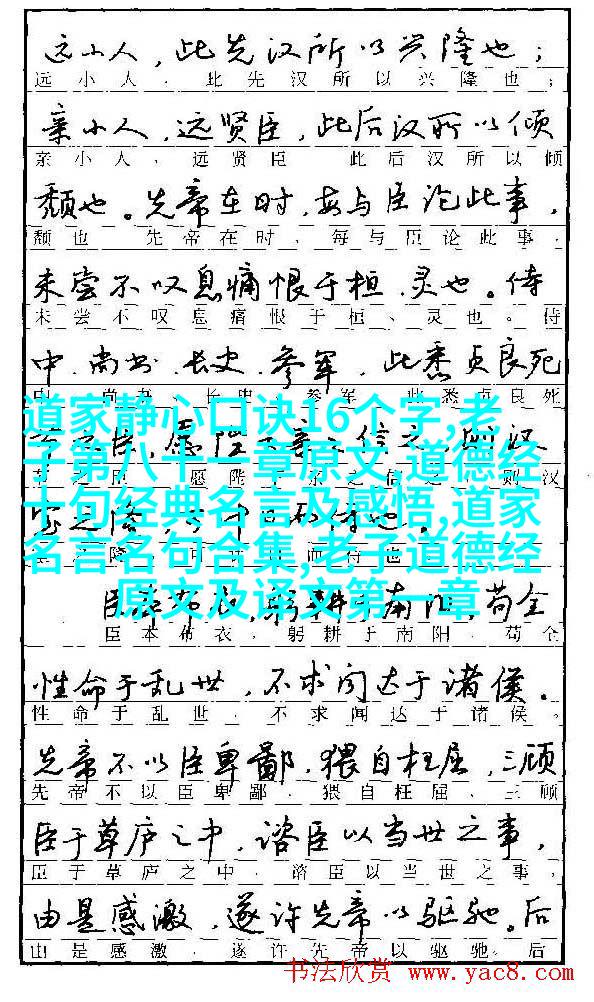 远小人，此先汉所以兴隆也；
远小人，此先汉所以兴隆也；
亲小人，远贤臣，此后汉所以倾
亲小人，远贤臣 此后汉所以倾
颓也。先帝在时，每与臣论此事，
颓也 先帝在时，每与臣论此事，
未尝不叹息痛恨于桓、灵也。侍
未尝不叹息痛恨于桓、灵也。侍
中、尚书、长史、参军，此悉贞良死
道家静心口诀16个字,老
子第八十一章原文,道德经
十句经典名言及感悟,道家
名言名句合集,老子道德经
原文及译文第一章
臣本布衣，躬耕于南阳，苟全
臣本布衣，躬耕于南阳，苟全
性命于乱世，不求闻达于诸侯。
性命于乱世，不求闻达于诸侯。
先帝不以臣卑鄙，猥自枉屈，三顾
先帝不以臣卑鄙，猥自枉屈、三顾
臣于草庐之中，谘臣以当世之事，
臣于草庐之中，谘臣以当世之事，
由是感激，遂许先帝以驱驰。后
由是感激，遂许先帝以驱驰。后
书法欣赏 www.yac8.com